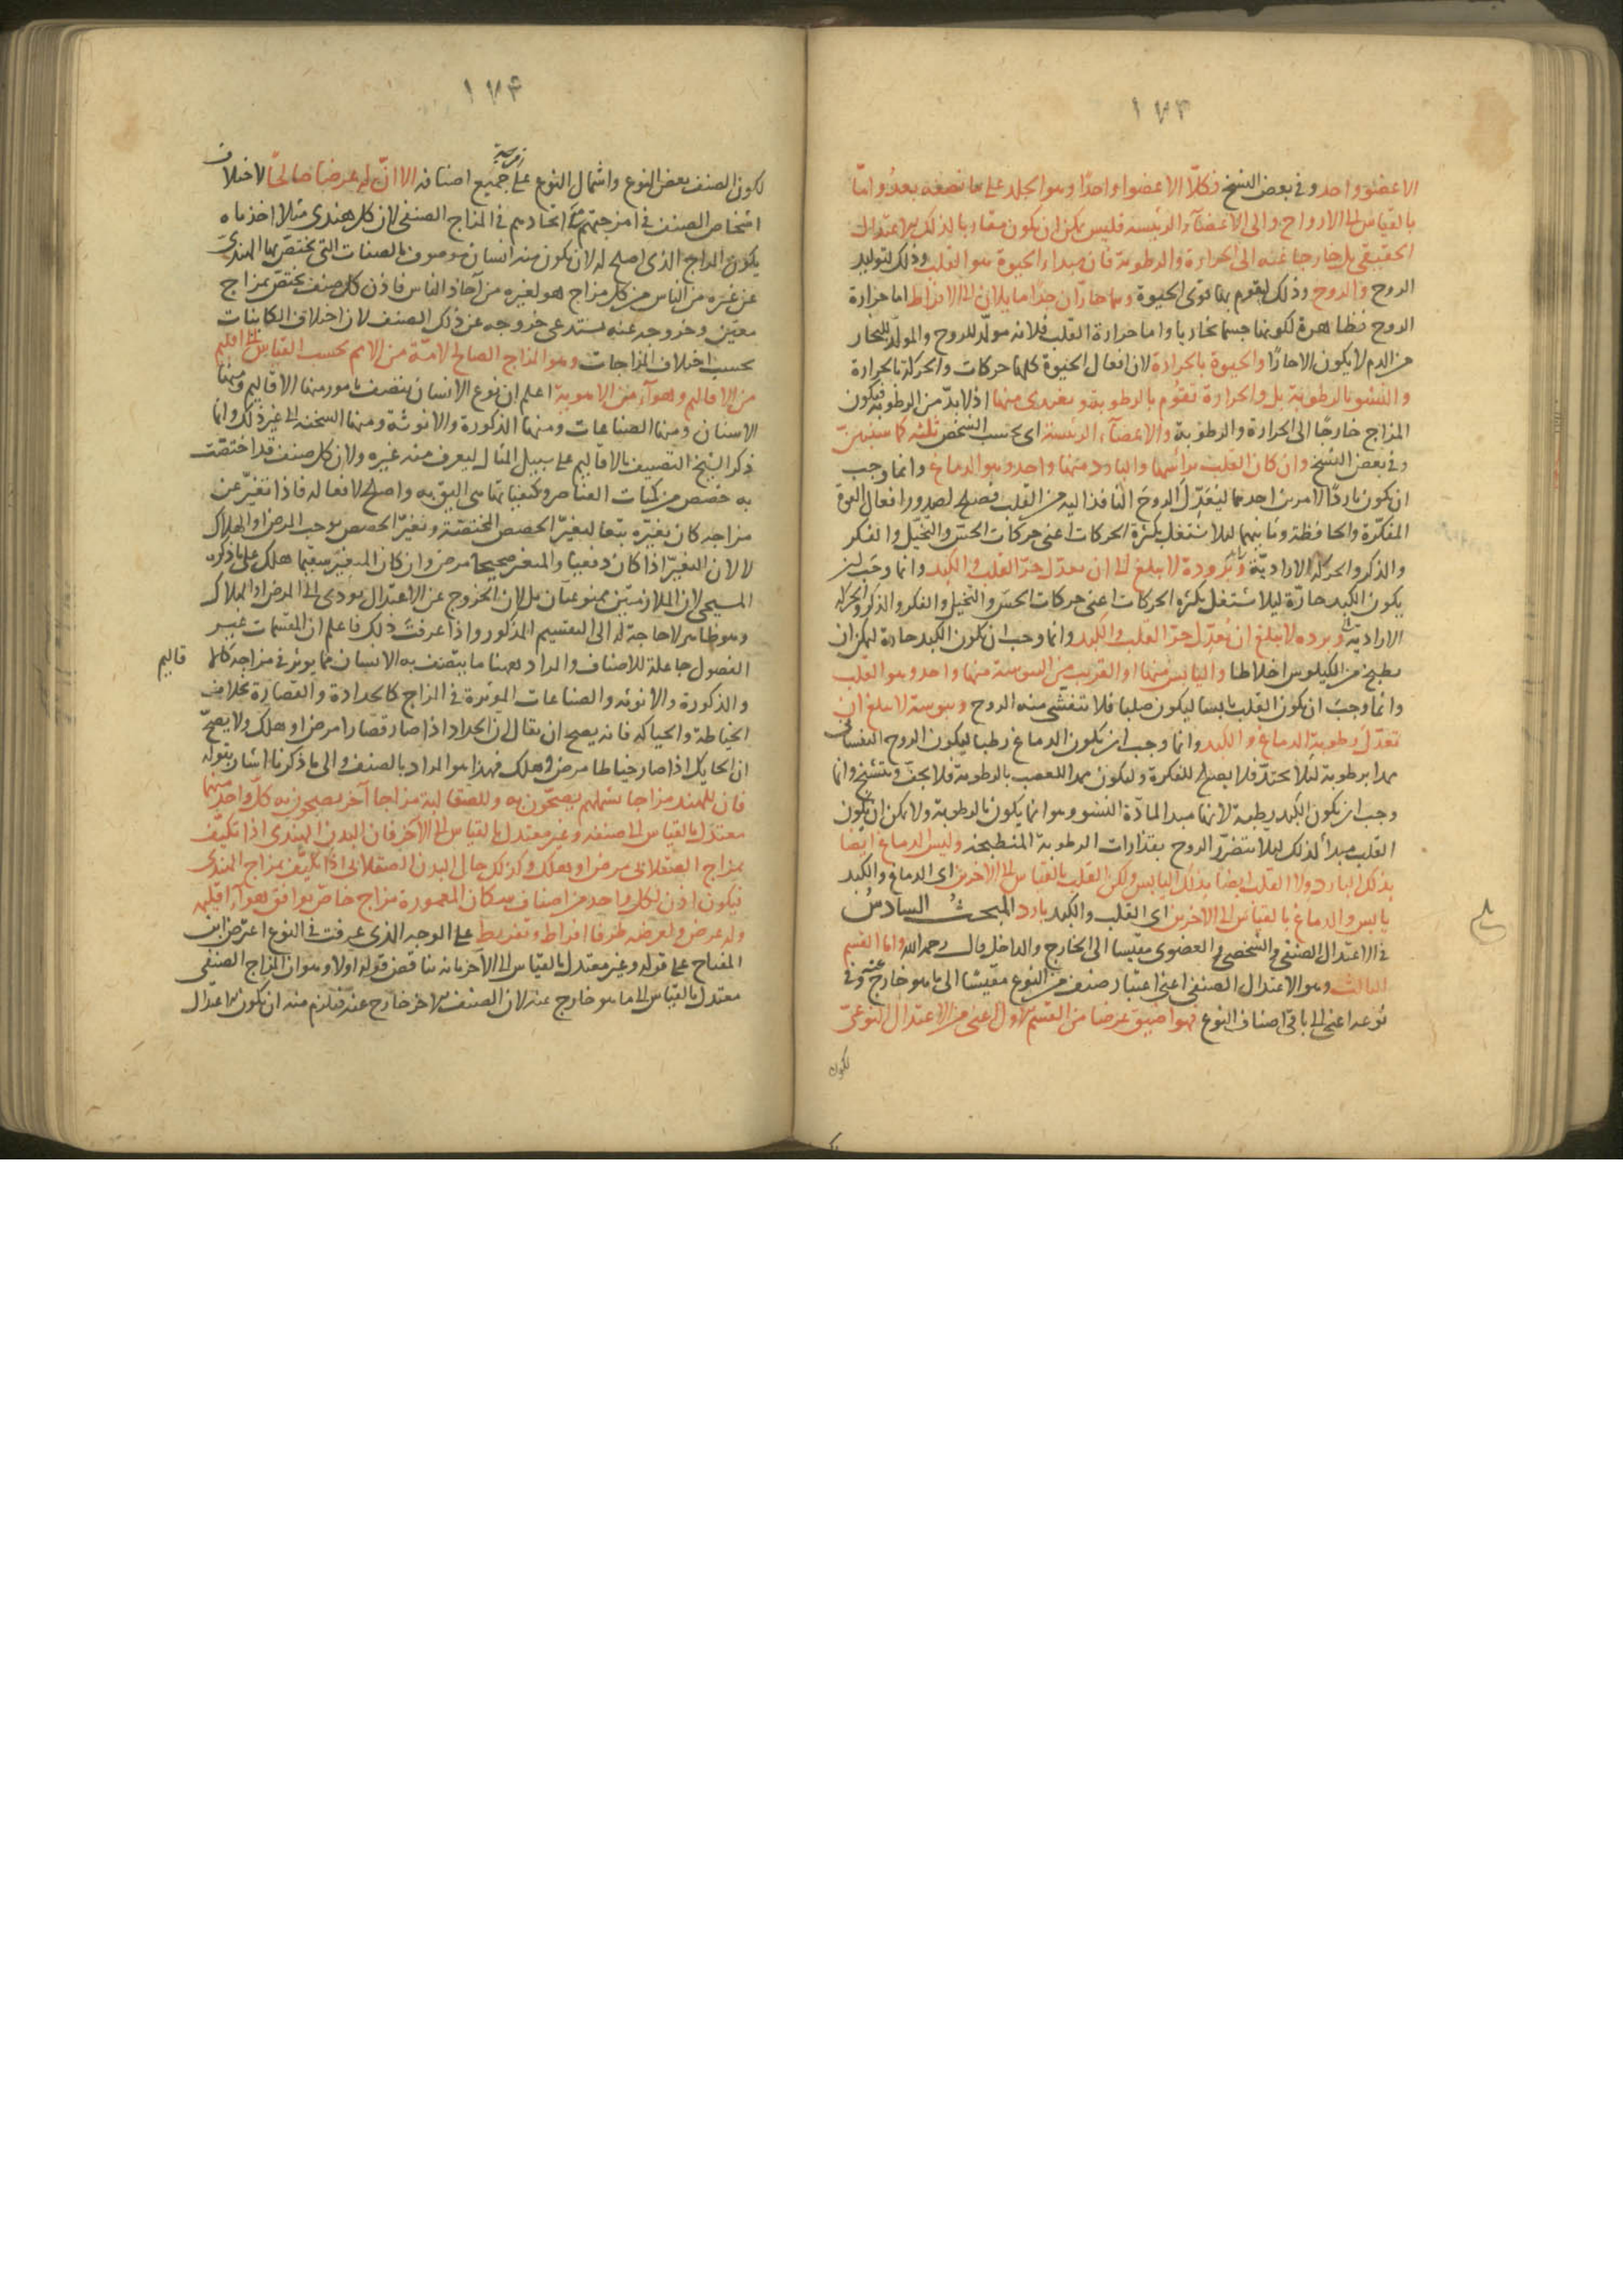 ١٧٣
الا عضو واحد وفى بعض النسخ فكلّا الا عضوا واحدًا وهو الجلد على ما نصفه بعدُ واما
بالقياس الى الارواح والى الاعضآء الرئيسه فليس يمكن ان يكون مقاربا لذلك الاعتدال
الحقيقى بل خارجا عنه الى الحرارة والرطوبة فان مبداء الحيوة هو القلب وذلك لتوليد
الروح والروح وذلك ليقوم بها قوى الحيوة وهما حارّان جدّا مايلان الى الافراط اما حرارة
الروح فظاهرة لكونها جسما بخاريا واما حرارة القلب فلانه مولّد للروح والمولّد للبخار
من الدم لا يكون الا حارّا والحيوة بالحرارة لان افعال الحيوة كلها حركات والحركة بالحرارة
والنشو بالرطوبة بل والحرارة تقوّم بالرطوبة وتغتذى منها اذ لا بدّ من الرطوبة فيكون
المزاج خارجا الى الحرارة والرطوبة والاعضآء الرئيسة اى بحسب الشخص ثلثه كما سنبين
وفى بعض النسخ وان كان القلب رأسها والبارد منها واحد وهو الدماغ وانما وجب
ان يكون باردا لامرين احدهما ليعدّل الروح النافذ اليه من القلب فيصلح لصدور افعال القوة
المفكّرة والحافظة وثانيهما ليلا يشتعل بكثرة الحركات اعنى حركات الحسّ والتخيّل والفكر
والذكر والحركة الارادية وبرودة لا يبلغ الى ان يعدل حرّ القلب والكبد وانما وجب ان
يكون الكبد حارّة ليلا يشتعل بكثرة الحركات اعنى حركات الحسّ والتخيل والفكر والذكر والحركة
الارادية وبرده لا يبلغ ان يعدّل حرّ القلب والكبد وانما وجب ان يكون الكبد حارة ليمكن ان
يطبخ من الكيلوس اخلاطا واليابس منها او القريب من اليبوسة منها واحد وهو القلب
وانما وجب ان يكون القلب يابسا ليكون صلبا فلا تنفشى منه الروح ويبوسته لا يبلغ ان
تعدّل رطوبة الدماغ والكبد وانما وجب ان يكون الدماغ رطبا ليكون الروح النفسانى
ممدا برطوبة لئلا يحتدّ فلا يصلح للفكرة وليكون ممدا للعصب بالرطوبة فلا يجفّ ويتشنّج وانما
وجب ان يكون الكبد رطبة لانها مبدا لمادّة النشو وهو انما يكون بالرطوبة ولا يمكن ان يكون
القلب مبدأ لذلك ليلا يتضرّر الروح بقذارات الرطوبة المنطبخه وليس الدماغ ايضا
بذلك البارد ولا القلب ايضا بذلك اليابس ولكن القلب بالقياس الى الآخرين اى الدماغ والكبد
يابس والدماغ بالقياس الى الآخرين اى القلب والكبد بارد المبحث السادس
فى الاعتدال الصنفى والشخصى والعضوى مقيسا الى الخارج والداخل قال رحمه الله واما القسم
الثالث وهو الاعتدال الصنفى اعنى اعتبار صنف من النوع مقيسا الى ما هو خارج عنه وفى
نوعه اعنى الى باقى اصناف النوع فهو اضيق عرضا من القسم الاول اعنى من الاعتدال النوعىّ
لكون
١٧۴
لكون الصنف بعض النوع واشتمال النوع على جميع اصنافه الا انّ له عرضا صالحًا لاختلاف
اشخاص الصنف فى امزجتهم مع اتحادهم فى المزاج الصنفى لان كل هندى مثلا اخذناه
يكون المزاج الذى اصلح له لان يكون منه انسان موصوف بالصفات التى يختصّ بها الهندى
عن غيره من الناس من كل مزاج هو لغيره من آحاد الناس فاذن كل صنف يختصّ بمزاج
معيّن وخروجه عنه يستدعى خروجه عن ذلك الصنف لان اختلاف الكاينات
بحسب اختلاف المزاجات وهو المزاج الصالح لامّة من الامم بحسب القياس الى اقليم
من الاقاليم وهوآء من الاهوية اعلم ان نوع الانسان يتصنف بامور منها الاقاليم ومنها
الاسنان ومنها الصناعات ومنها الذكورة والانوثة ومنها السحنه الى غير ذلك وانما
ذكر الشيخ التصنيف بالاقاليم على سبيل المثال ليعرف منه غيره ولان كل صنف قد اختصّت
به حصص من كميات العناصر وكيفياتها هى اليق به واصلح لافعاله فاذا تغيّر عن
مزاجه كان تغيّره تبعا لتغيّر الحصص المختصّة وتغيّر الحصص يوجب المرض او الهلاك
لا لان التغيّر اذا كان دفعيا والمتغير صحيحا مرض وان كان المتغيّر سقيما هلك على ما ذكره
المسيحى لان الملازمتين ممنوعتان بل لان الخروج عن الاعتدال يودى الى المرض او الهلاك
وهو ظاهر لا حاجة له الى التقسيم المذكور واذا عرفت ذلك فاعلم ان المقسمات غير
الفصول جاعلة للاصناف والمراد بهمنا ما يتصف به الانسان مما يوثر فى مزاجه كالا
قاليم
والذكورة والانوثه والصناعات الموثرة فى المزاج كالحدادة والقصارة بخلاف
الخياطة والحياكه فانه يصح ان يقال ان الحداد اذا صار قصّارا مرض او هلك ولا يصحّ
ان الحايك اذا صار خياطا مرض وهلك فهذا هو المراد بالصنف والى ما ذكرنا اشار بقوله
فان للهند مزاجا يشملهم يصحّون به وللصقالبة مزاجا آخر يصحون به كل واحد منهما
معتدل بالقياس الى صنفه وغير معتدل بالقياس الى الآخر فان البدن الهندى اذا تكيّف
بمزاج الصقلابى مرض او هلك وكذلك حال البدن الصقلابى اذا تكيّف بمزاج الهندى
فيكون اذن لكل واحد من اصناف سكان المعمورة مزاج خاصّ يوافق هوآء اقليمه
وله عرض ولعرضه طرفا افراط وتفريط على الوجه الذى عرفت فى النوع اعترض ابن
المفتاح على قوله وغير معتدل بالقياس الى الآخر بانه يناقض قوله اولا وهو ان المزاج الصنفى
معتدل بالقياس الى ما هو خارج عنه لان الصنف الآخر خارج عنه فيلزم منه ان يكون الاعتدال